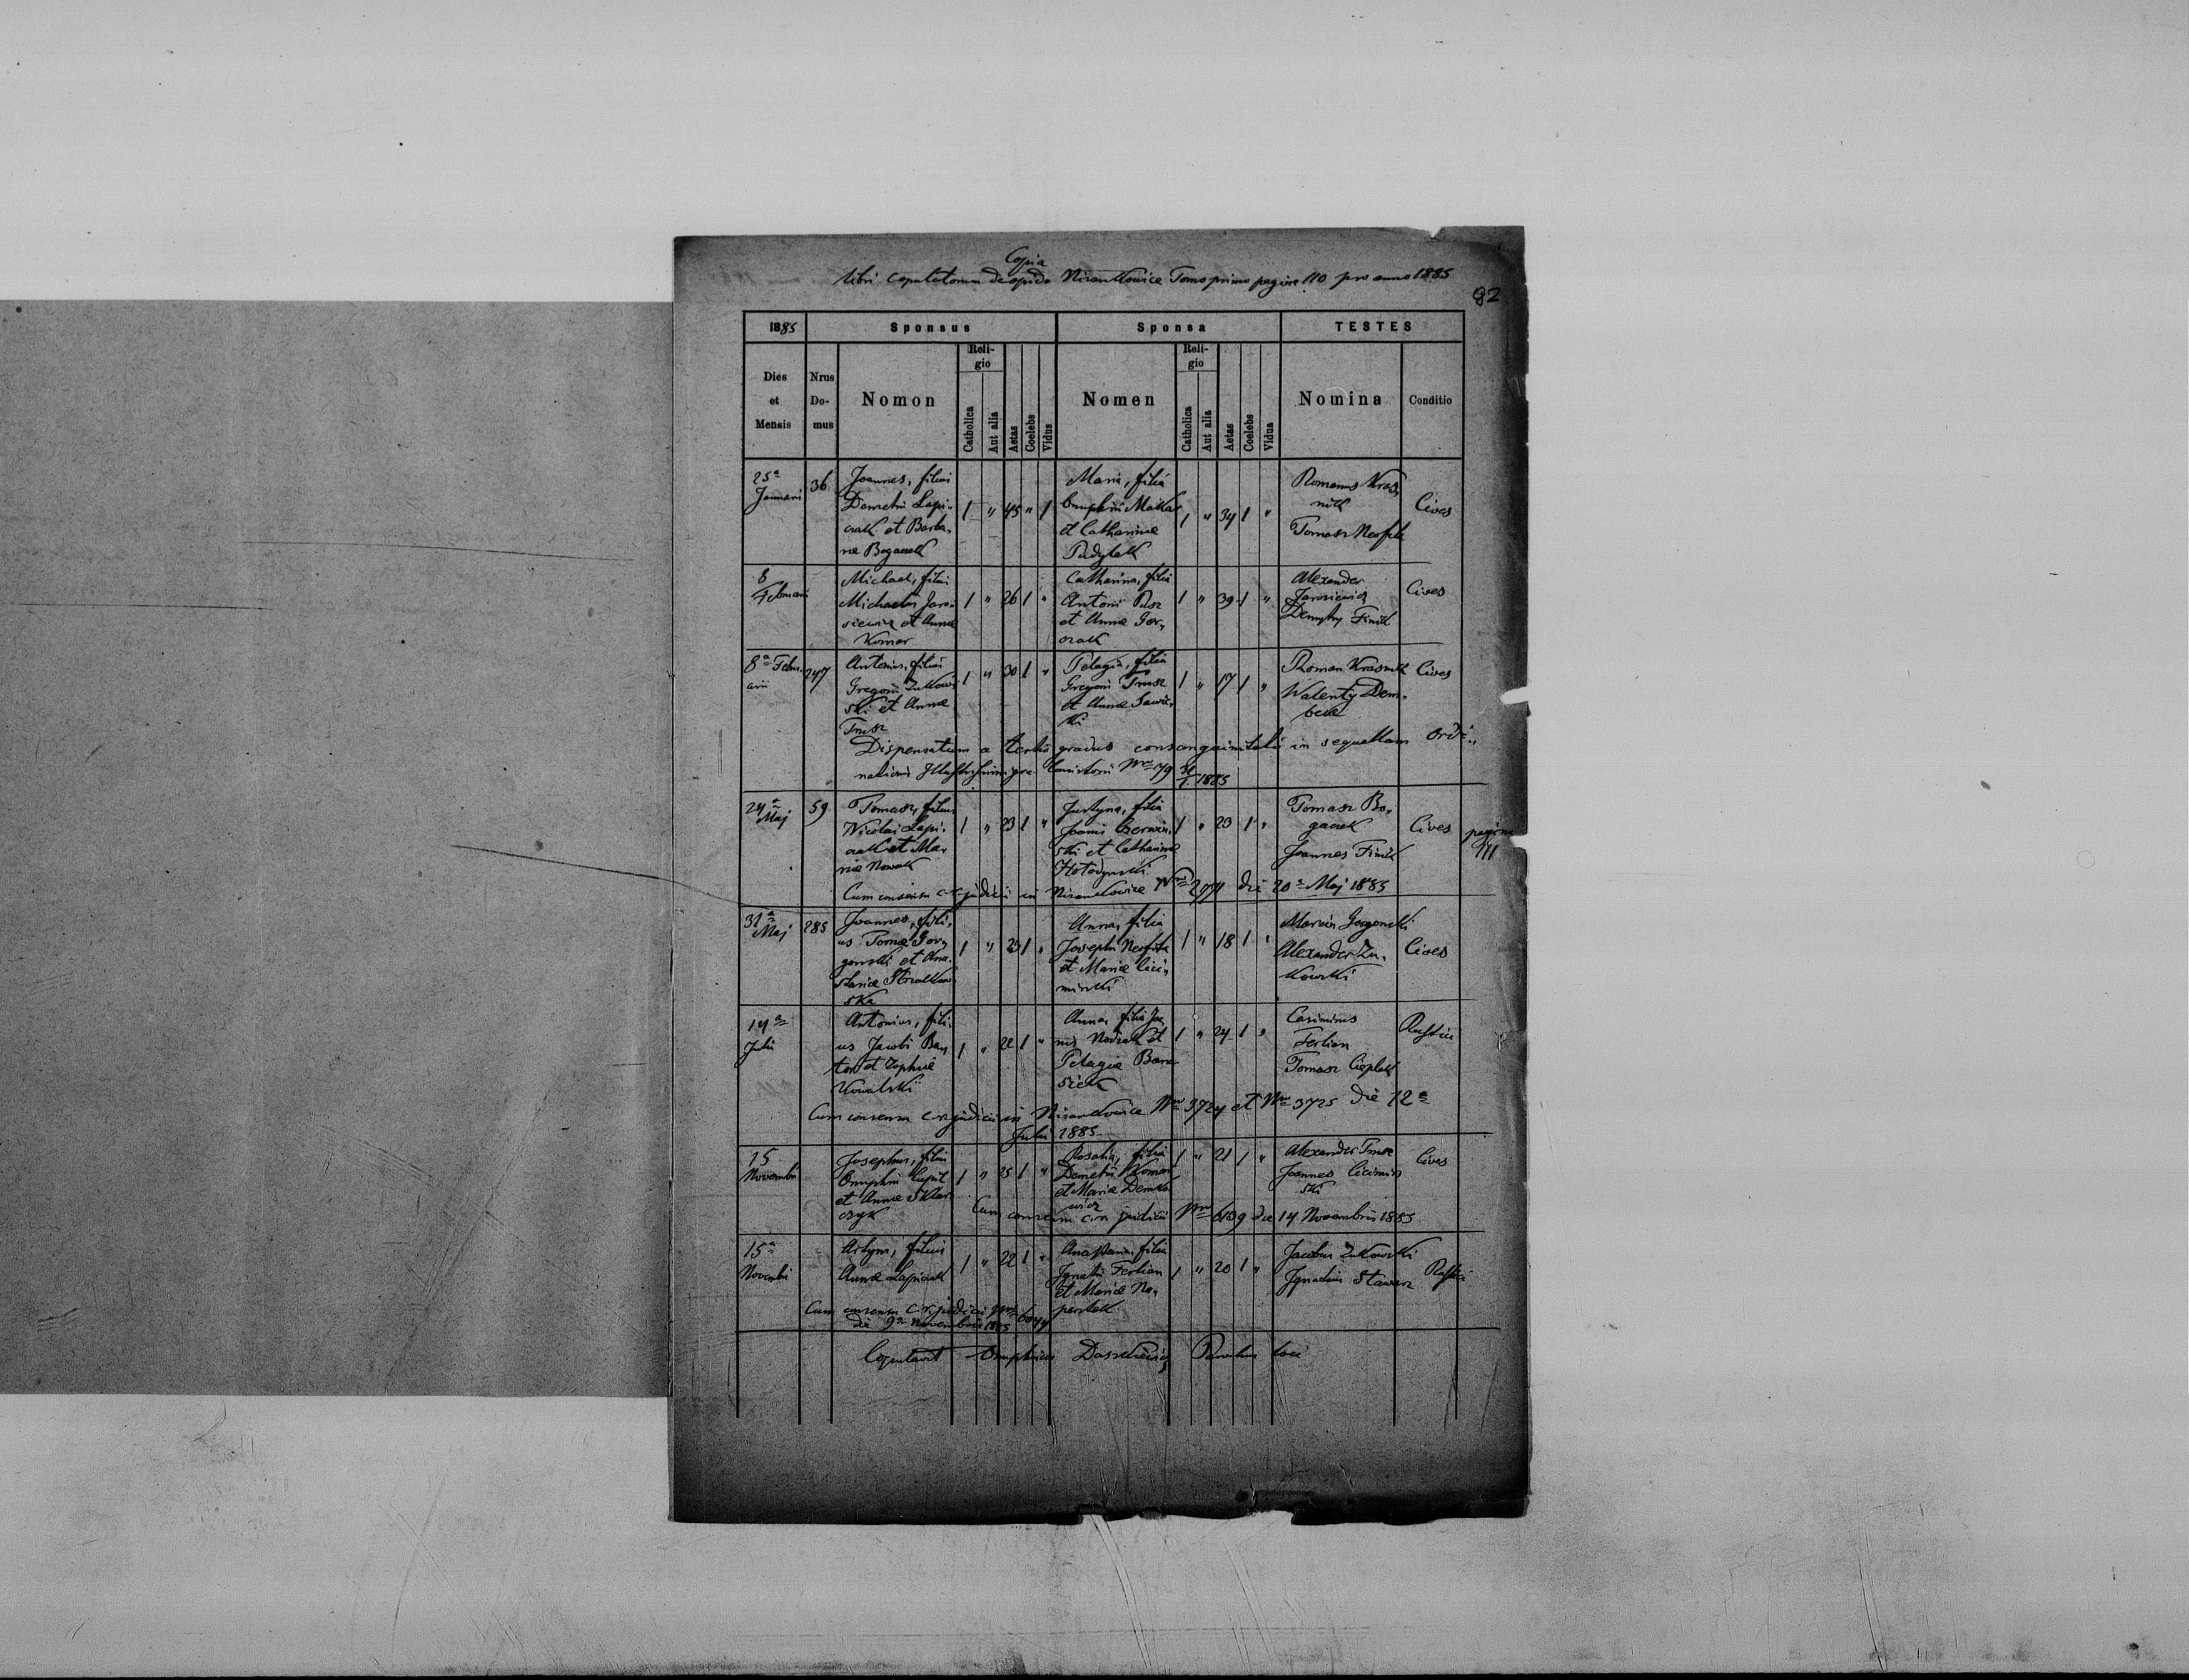 Copia
libri copulatorum de opido Nizankowice Tomo primo pagina 110 pro anno 1885
92
1885 Sponsus Sponsa TESTES
Dies et Mensis Nrus Do-mus Nomon Reli-gio Catholica Aut alia Aetas Coelebs Vidus Nomen Reli-gio Catholica Aut alia Aetas Coelebs Vidua Nomina Conditio
25a Januarii 36
Joannes, filius
Demetrii Lapi-
czak et Barba-
rae Bogaczek
1 " 45 " 1
Maria, filia
Onuphrii Makar
et Catharinae
Pudylak
1 " 34 1 "
Romanus Kras,
nik
Tomasz Neofita
Cives
8 Februarii
Michael, filius
Michaelis Jaro-
siewicz et Annae
Komar
1 " 26 1 "
Catharina, filia
Antoni Pusz
et Annae Gor,
czak
1 " 39 1 "
Alexander
Jarosiewicz
Demytry Finik
Cives
8a Febru-
arii
247
Antonius, filius
Gregorii Zukow
ski et Annae
Trusz
1 " 30 1 "
Pelagia, filia
Gregorii Trusz
et Annae Sawic,
ki
1 " 17 1 "
Roman Krasnik
Walenty Dem-
Cives
Dispensatum a tertio gradus consanguinitatis in sequellam ordi,,
Nro 79 1885
24a Maj 59
Tomasz, filius
Nicolai Lapi-
czak et Ma,
riae Nowak
1 " 23 1 "
Justyna, filia
Joanis Czerwin,
ski et Catharinae
Hołodynski
1 " 23 1 "
Tomasz Bo,
gaczek
Joannes Finik
Cives
pagina
111
Cum consensu c.r. judicii in Nizankowice Nro 2771 die 20a Maj 1885
31a Maj 285
Joannes, fili,
us Tomae Gor,
gonski et Ana-
stasiae Strzalkow
ska
1 " 23 1 "
Anna, filia
Josephi Neofita
et Mariae Cici,
minski
1 " 18 1 "
Marcin Gorgonski
Alexander Zu,
kowski
Cives
14a Julii
Antonius, fili-
us Jacobi Ban
tor et Zophiae
Kowalski
1 " 22 1 "
Anna, filia Joa
nis Nedzak et
Pelagiae Bara
siek
1 " 24 1 "
Casimirus
Ferlian
Tomasz Cieplak
Rustici
Cum consensu c.r. judicii in Nizankowice Nro 3724 et Nro 3725 die 12a
Julii 1885
15
Novembris
Josephus, filius
Onuphrii
et Annae Sklar
czyk
1 " 25 1 "
Rosalia, filia
Demetrii Komar
et Mariae Demko
wicz
1 " 21 1 "
Alexander Trusz
Joannes Cicimin
ski
Cives
Cum consensu c.r. judicii Nro 6109 die 14 Novembris 1885
15a
Novembris
Artym, filius
Annae Lapiczak
1 " 22 1 "
Anastasia, filia
Ignatii Ferlian
et Mariae No,
1 " 20 1 "
Jacobus Zukowski
Ignatius Stawarz
Rustici
Cum consensu c.r. judicii Nro 6044
die 9a Novembris 1885
Copulavit Onuphrius Parochus loci